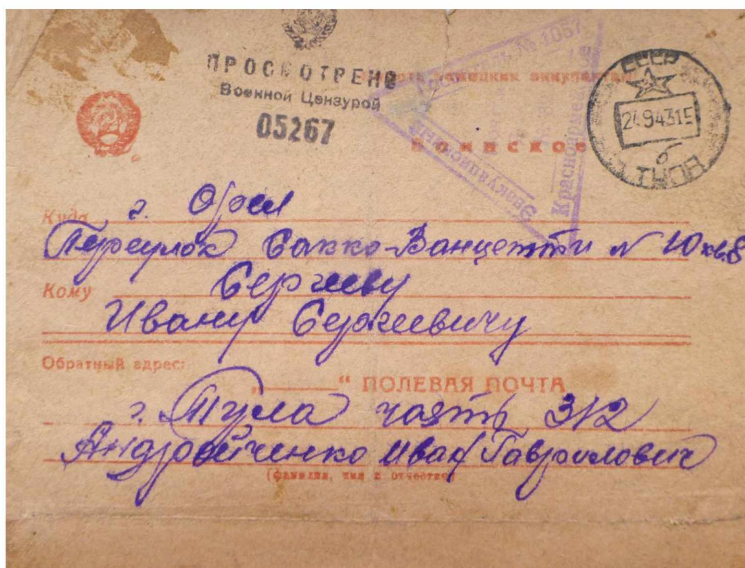 ПРОСМОТРЕНО
Военной Цензурой
05267
СССР
2494315
б
ТУЛА
Воинское
Куда г. Орел
Переулок Сакко-Ванцетти N 10 кв. 8
Кому Сергееву
Ивану Сергеевичу
Обратный адрес:
„ “ ПОЛЕВАЯ ПОЧТА
г. Тула часть 312
Андрейченко Иван Гаврилович
(фамилия, имя и отчество)